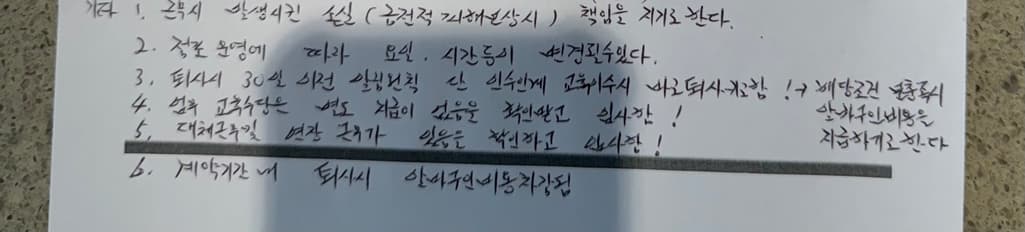 기타 1. 근무시 발생시킨 손실 (금전적 피해보상시) 책임을 지기로 한다.
2. 점포운영에 따라 요일. 시간등이 변경될수있다.
3. 퇴사시 30일 이전 알림원칙 단 인수인계 교육이수시 바로퇴사가능함 ! → 해당조건 불충족시 알바구인비용을 지급하기로한다
4. 업무 교육수당은 별도 지급이 없음을 확인받고 입사함 !
5. 대체근무일 연장 근무가 있음을 확인하고 입사함 !
6. 계약기간내 퇴사시 알바구인비용차감됨